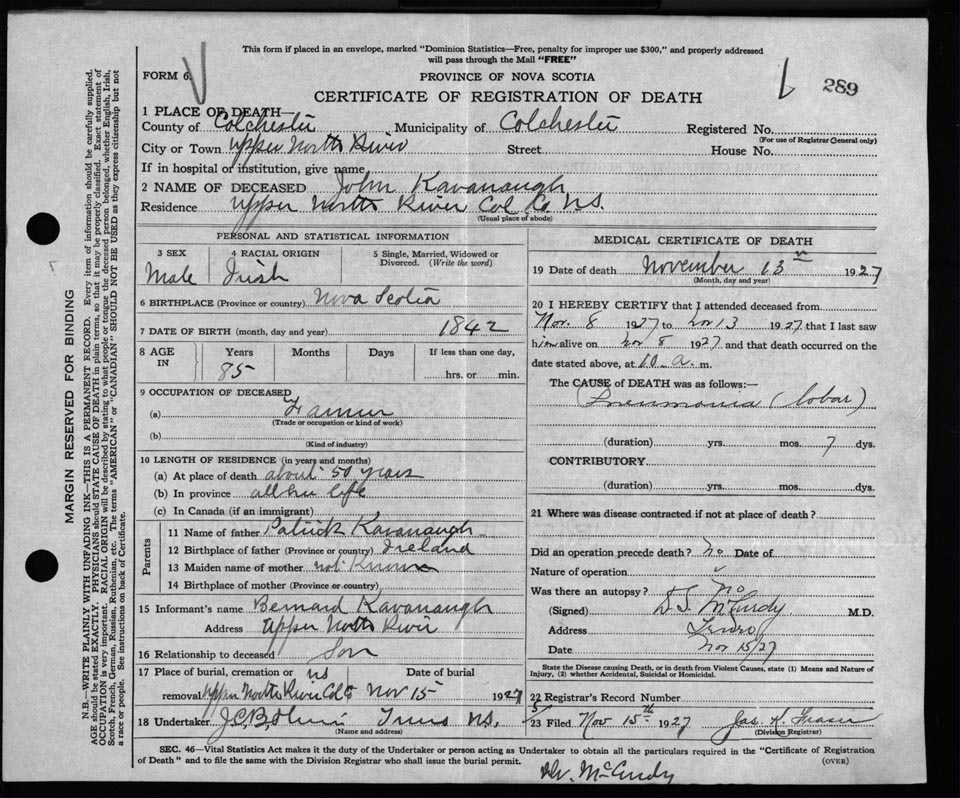 This form if placed in an envelope, marked "Dominion Statistics—Free, penalty for improper use $300," and properly addressed
will pass through the Mail "FREE"
FORM 6.
PROVINCE OF NOVA SCOTIA
289
CERTIFICATE OF REGISTRATION OF DEATH
1 PLACE OF DEATH—
County of Colchester Municipality of Colchester Registered No.
(For use of Registrar General only)
City or Town Upper North River Street House No.
If in hospital or institution, give name
2 NAME OF DECEASED John Kavanaugh
Residence Upper North River Col Co. N.S.
(Usual place of abode)
PERSONAL AND STATISTICAL INFORMATION
3 SEX 4 RACIAL ORIGIN 5 Single, Married, Widowed or Divorced. (Write the word)
Male Irish
6 BIRTHPLACE (Province or country) Nova Scotia
7 DATE OF BIRTH (month, day and year) 1842
8 AGE IN Years Months Days If less than one day,
85 hrs. or min.
9 OCCUPATION OF DECEASED
(a) Farmer
(Trade or occupation or kind of work)
(b)
(Kind of industry)
10 LENGTH OF RESIDENCE (in years and months)
(a) At place of death about 50 years
(b) In province all his life
(c) In Canada (if an immigrant)
Parents
11 Name of father Patrick Kavanaugh
12 Birthplace of father (Province or country) Ireland
13 Maiden name of mother not known
14 Birthplace of mother (Province or country)
15 Informant's name Bernard Kavanaugh
Address Upper North River
16 Relationship to deceased Son
17 Place of burial, cremation or NS Date of burial
removal Upper North River Col Co Nov 15 1927
18 Undertaker Truro NS.
(Name and address)
MEDICAL CERTIFICATE OF DEATH
19 Date of death November 13th 1927
(Month, day and year)
20 I HEREBY CERTIFY that I attended deceased from
Nov. 8 1927 to Nov 13 1927 that I last saw
him alive on Nov 8 1927 and that death occurred on the
date stated above, at 10 a. m.
The CAUSE of DEATH was as follows:—
Pneumonia (lobar)
(duration) yrs. mos. 7 dys.
CONTRIBUTORY
(duration) yrs. mos. dys.
21 Where was disease contracted if not at place of death?
Did an operation precede death? No Date of
Nature of operation
Was there an autopsy? no
(Signed) D.S. McCurdy M.D.
Address Truro
Date Nov 15/27
State the Disease causing Death, or in death from Violent Causes, state (1) Means and Nature of
Injury, (2) whether Accidental, Suicidal or Homicidal.
22 Registrar's Record Number
23 Filed Nov 15th 1927 Jas. K. Fraser
(Division Registrar)
SEC. 46—Vital Statistics Act makes it the duty of the Undertaker or person acting as Undertaker to obtain all the particulars required in the "Certificate of Registration
of Death" and to file the same with the Division Registrar who shall issue the burial permit. (OVER)
Dr. McCurdy
MARGIN RESERVED FOR BINDING
N.B.—WRITE PLAINLY WITH UNFADING INK—THIS IS A PERMANENT RECORD. Every item of information should be carefully supplied.
AGE should be stated EXACTLY. PHYSICIANS should STATE CAUSE OF DEATH in plain terms, so that it may be properly classified. Exact statement of
OCCUPATION is very important. RACIAL ORIGIN will be described by stating to what people or tongue the deceased person belonged, whether English, Irish,
Scotch, French, German, Russian, Ruthenian, etc. The terms "AMERICAN" or "CANADIAN" SHOULD NOT BE USED as they express citizenship but not
a race or people. See instructions on back of Certificate.